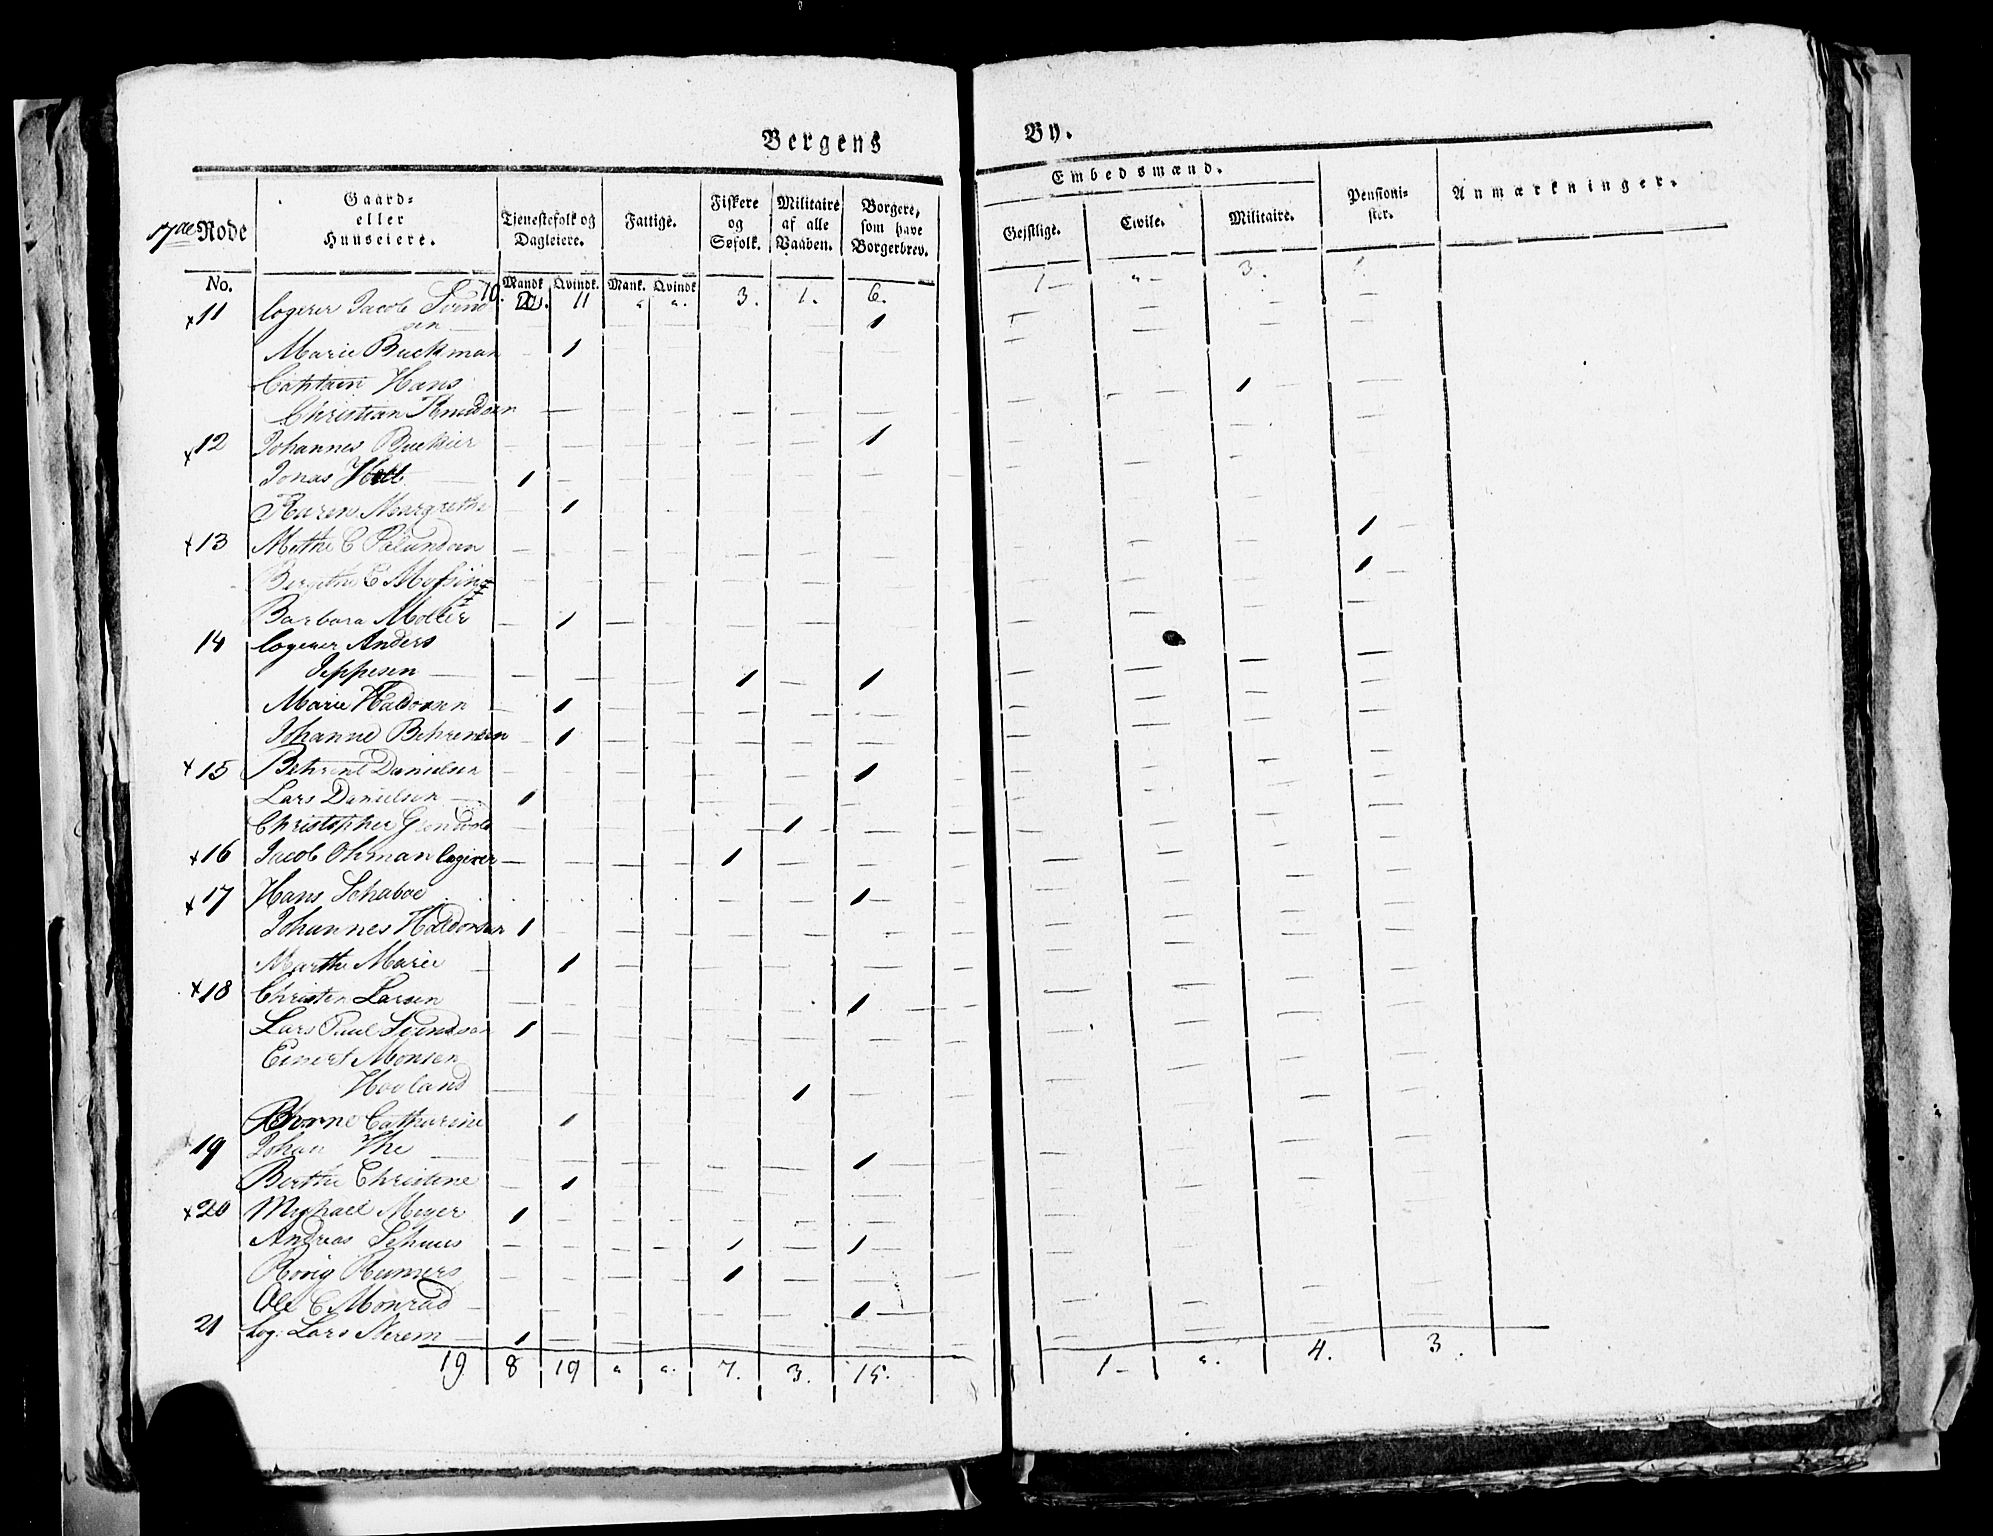 Bergens By.
17de Rode
Gaard- eller Huuseiere.
Tjenestefolk og Dagleiere.
Fattige.
Fiskere og Søfolk.
Militaire af alle Vaaben.
Borgere, som have Borgerbrev.
Embedsmænd.
Gejstlige.
Civile.
Militaire.
Pensionister.
Anmærkninger.
No. Mandk Qvindk. Mank. Qvindk
10. 11 " " 3. 1. 6. 1 " 3. 1.
x 11 logerer Jacob Svend
sen 1
Marie Buckman 1
Captain Hans
Christian Knudsen 1
x 12 Johannes 1
Jonas 1
Karen Margrethe 1
x 13 Methe C 1
Bergithe C 1
Barbara Moller 1
14 logerer Anders
Jeppesen 1 1
Marie Haldorsen 1
Johanne Behrensen 1
x 15 Behrent Danielsen 1
Lars Danielsen 1
Christopher 1
x 16 Jacob Ohman logerer 1
x 17 Hans Schaboe 1
Johannes Haldorsen 1
Marthe Marie 1
x 18 Christen Larsen 1
Lars Paul Svendsen 1
Einert Monsen
Hovland 1
Catharine 1
19 Johan 1
Berthe Christine 1
x 20 Michael Meyer 1
Andreas Schuus 1 1
Reimers 1
Ole C Monrad 1
21 Log: Lars Nerem 1
19 8 19 " " 7. 3. 15. 1 " 4. 3.